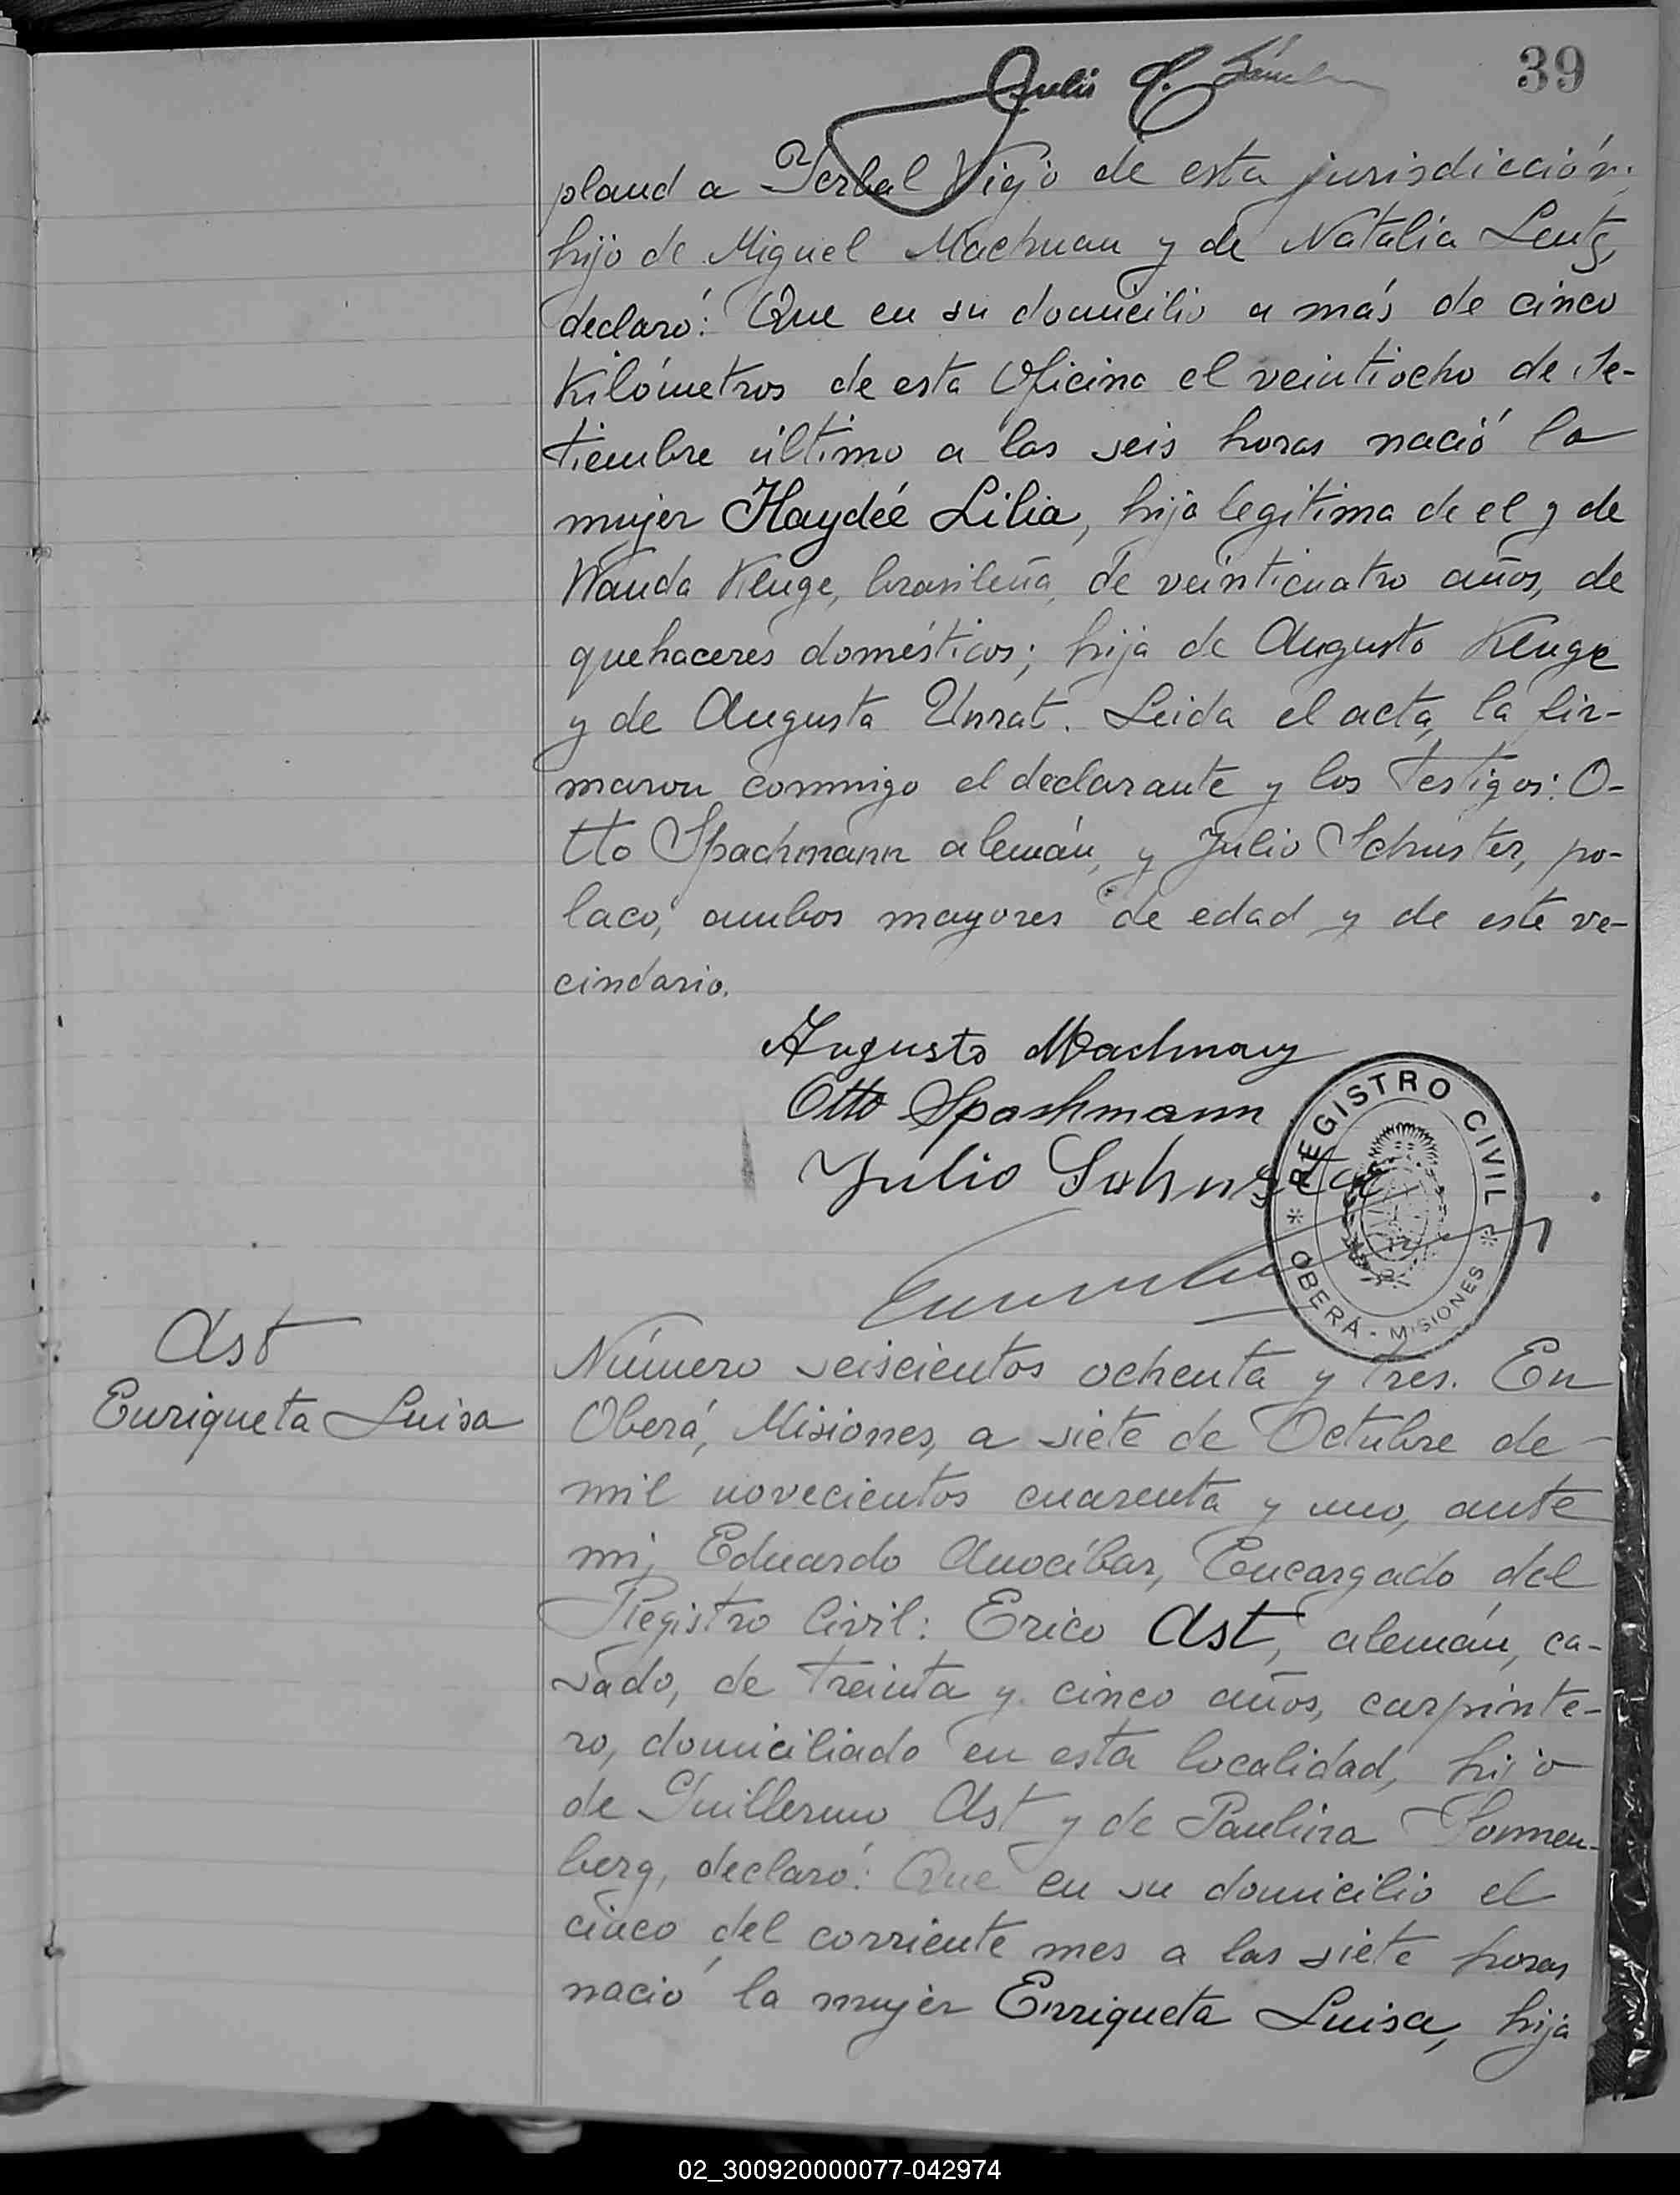 39
Julio C.
pland a Yerbal Viejo de esta jurisdicción;
hijo de Miguel Machnau y de Natalia Lentz,
declaró: Que en su domicilio a más de cinco
Kilómetros de esta Oficina el veintiocho de Se-
tiembre último a las seis horas nació la
mujer Haydéé Lilia, hija legitima de el y de
Wanda Kluge, brasileña, de veinticuatro años, de
quehaceres domésticos; hija de Augusto Kluge
y de Augusta Unrat. Leida el acta, la fir-
maron conmigo el declarante y los testigos: O-
tto Spachmann alemán, y Julio Schuster, po-
laco, ambos mayores de edad y de este ve-
cindario.
Augusto
Otto Spachmann
Julio Schuster
REGISTRO CIVIL
OBERÁ - MISIONES
Ast
Enriqueta Luisa
Número seiscientos ochenta y tres. En
Oberá, Misiones, a siete de Octubre de
mil novecientos cuarenta y uno, ante
mi, Eduardo Anocíbar, Encargado del
Registro Civil: Erico Ast, alemán, ca-
sado, de treinta y cinco años, carpinte-
ro, domiciliado en esta localidad, hijo
de Guillermo Ast y de Paulina Sonnen-
berg, declaró: Que en su domicilio el
cinco del corriente mes a las siete horas
nació la mujer Enriqueta Luisa, hija
02_300920000077-042974